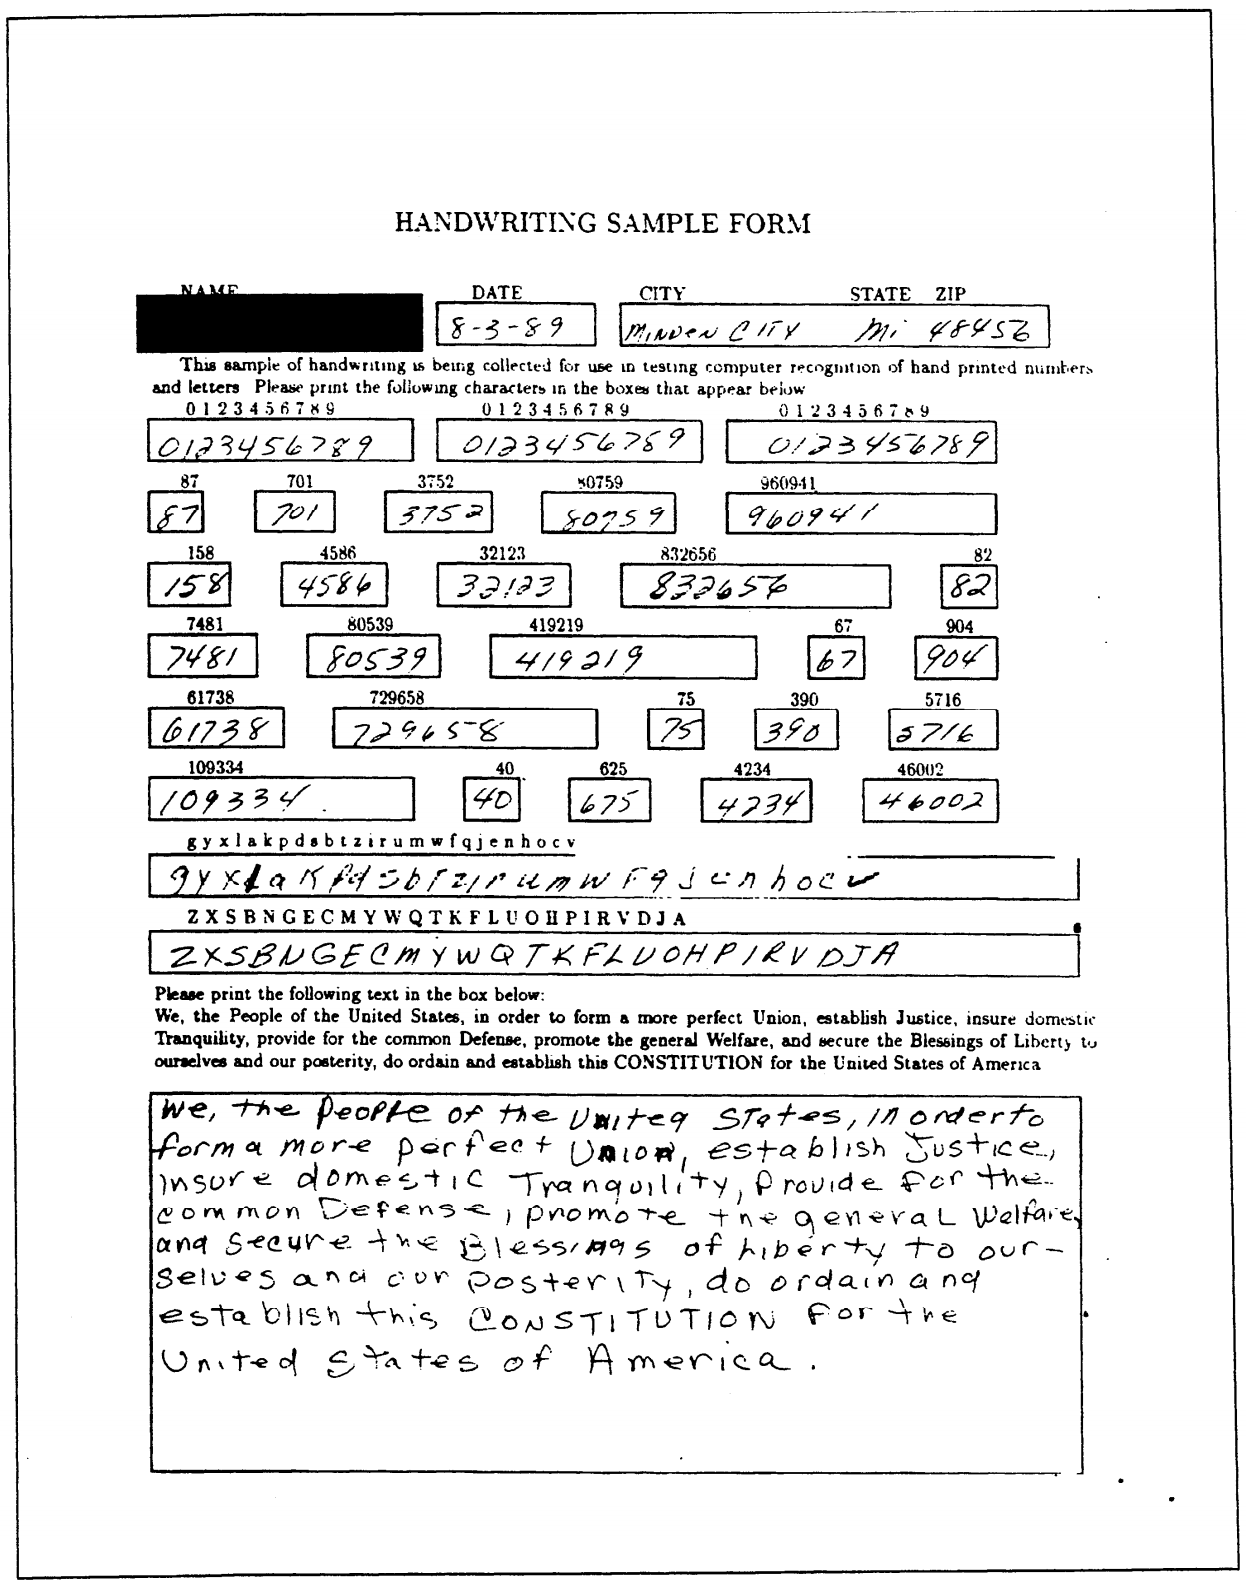 HANDWRITING SAMPLE FORM
NAME DATE CITY STATE ZIP
8-3-89 MINDEN CITY Mi 48456
This sample of handwriting is being collected for use in testing computer recognition of hand printed numbers
and letters Please print the following characters in the boxes that appear below
0 1 2 3 4 5 6 7 8 9 0 1 2 3 4 5 6 7 8 9 0 1 2 3 4 5 6 7 8 9
0123456789 0123456789 0123456789
87 701 3752 80759 960941
87 701 3752 80759 960941
158 4586 32123 832656 82
158 4586 32123 832656 82
7481 80539 419219 67 904
7481 80539 419219 67 904
61738 729658 75 390 5716
61738 729658 75 390 5716
109334 40 625 4234 46002
109334 40 675 4234 46002
g y x l a k p d s b t z i r u m w f q j e n h o c v
g y x l a K p d s b t z i r u m w F q j e n h o c v
Z X S B N G E C M Y W Q T K F L U O H P I R V D J A
Z X S B N G E C M Y W Q T K F L U O H P I R V D J A
Please print the following text in the box below:
We, the People of the United States, in order to form a more perfect Union, establish Justice, insure domestic
Tranquility, provide for the common Defense, promote the general Welfare, and secure the Blessings of Liberty to
ourselves and our posterity, do ordain and establish this CONSTITUTION for the United States of America
We, the People of the United States, in order to
form a more perfect Union, establish Justice,
insure domestic Tranquility, Provide for the
common Defense, promote the general Welfare,
and secure the Blessings of Liberty to our-
selves and our posterity, do ordain and
establish this CONSTITUTION For the
United States of America.